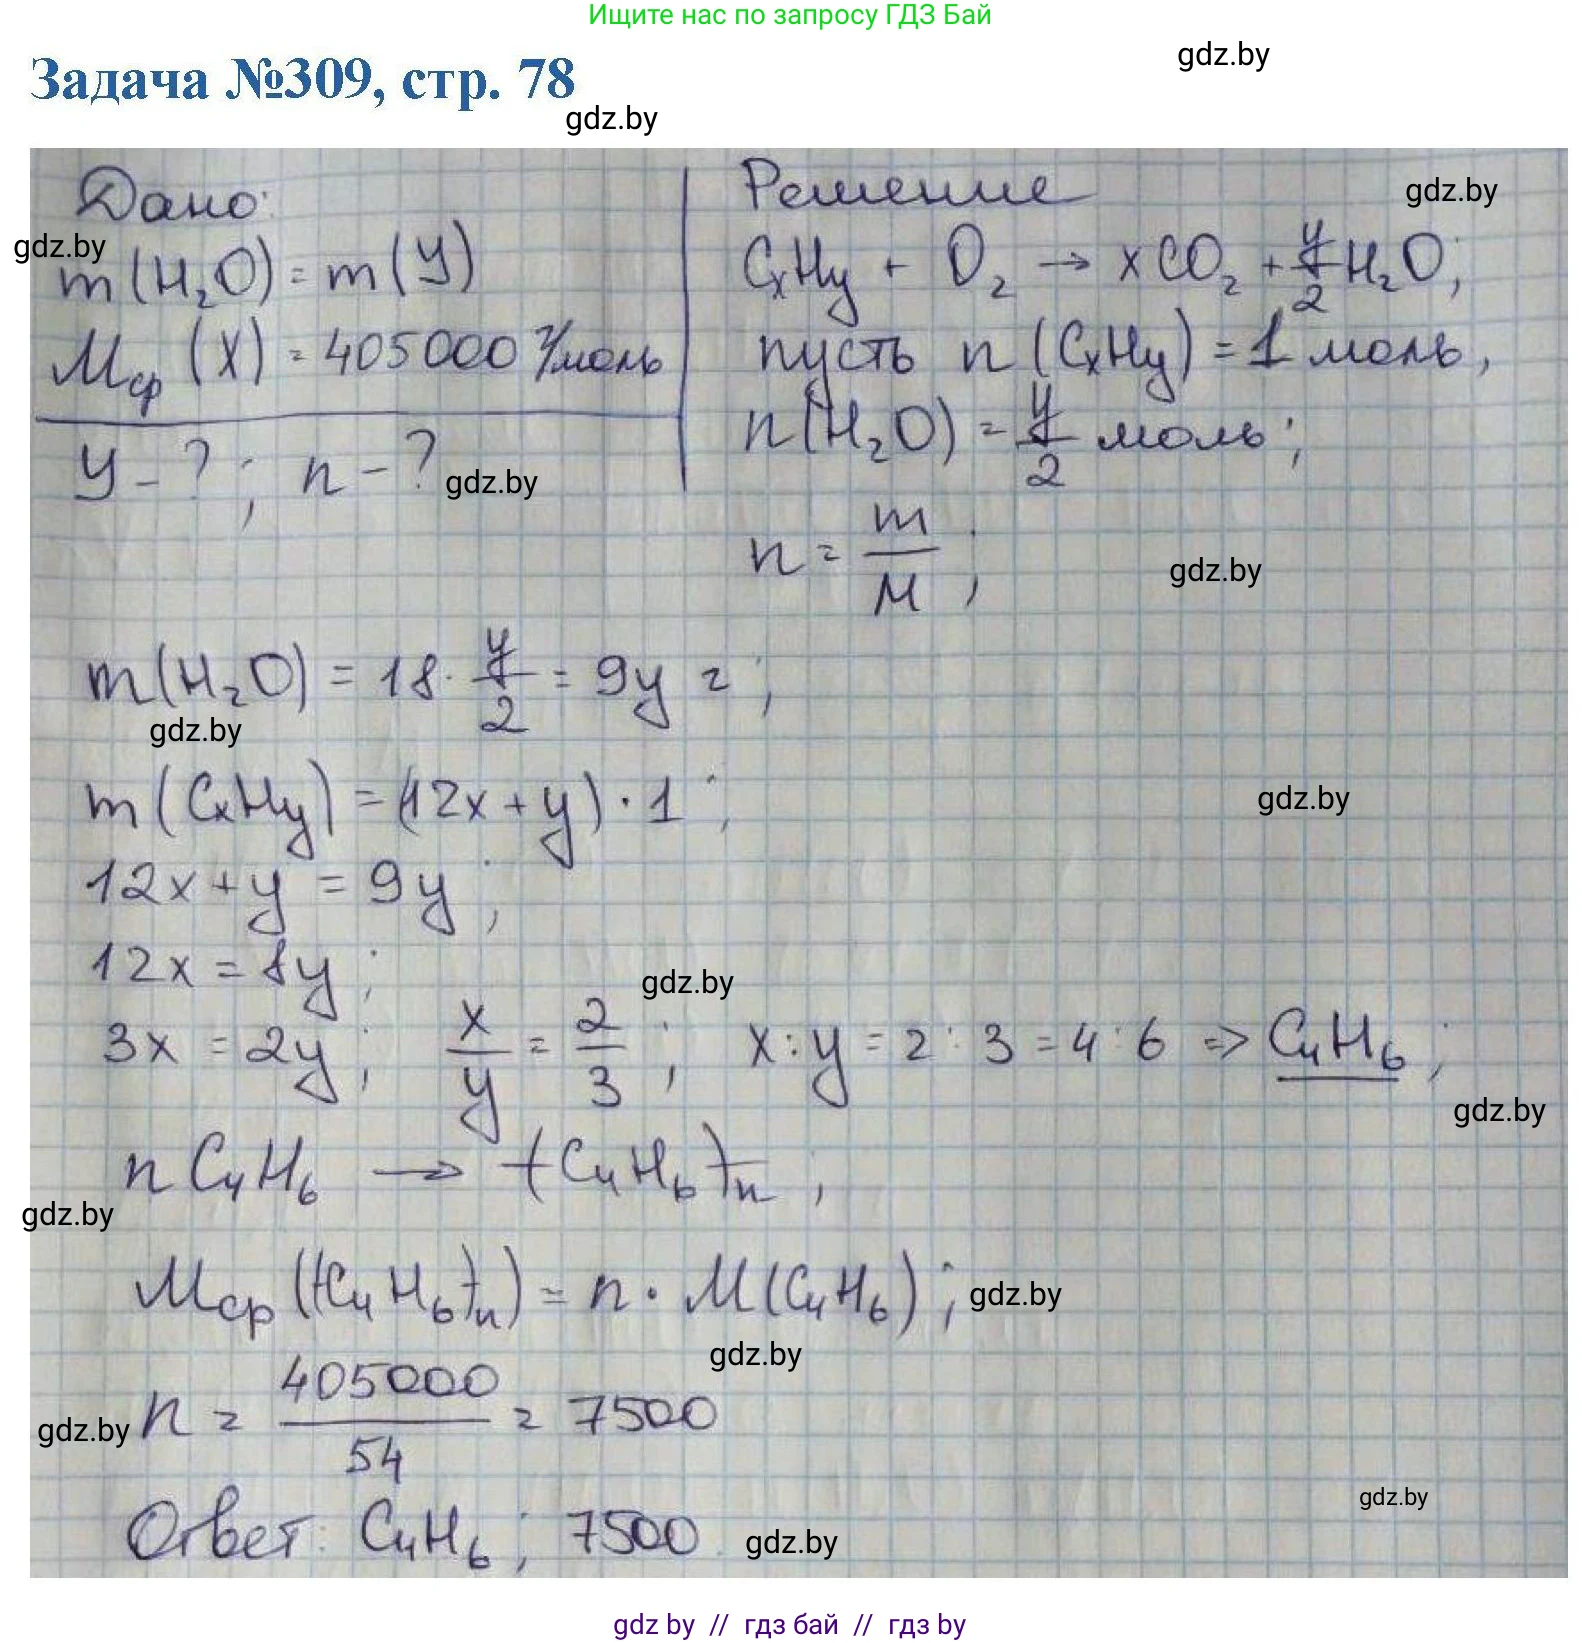 Ищите нас по запросу ГДЗ Бай
gdz.by
Задача №309, стр. 78
gdz.by
Дано:
m(H₂O) = m(У)
Mср(X) = 405000 г/моль
У - ?; n - ?
Решение
gdz.by
gdz.by
CₓHy + O₂ → xCO₂ + y/2 H₂O;
пусть n(CₓHy) = 1 моль,
n(H₂O) = y/2 моль;
gdz.by
n = m/M;
gdz.by
m(H₂O) = 18 · y/2 = 9y г;
gdz.by
m(CₓHy) = (12x + y) · 1;
gdz.by
12x + y = 9y;
12x = 8y;
gdz.by
3x = 2y; x/y = 2/3; x : y = 2 : 3 = 4 : 6 => C₄H₆;
gdz.by
n C₄H₆ → (C₄H₆)n;
gdz.by
Mср((C₄H₆)n) = n · M(C₄H₆);
gdz.by
gdz.by
n = 405000/54 = 7500
gdz.by
gdz.by
Ответ: C₄H₆; 7500.
gdz.by
gdz by // гдз бай // гдз by